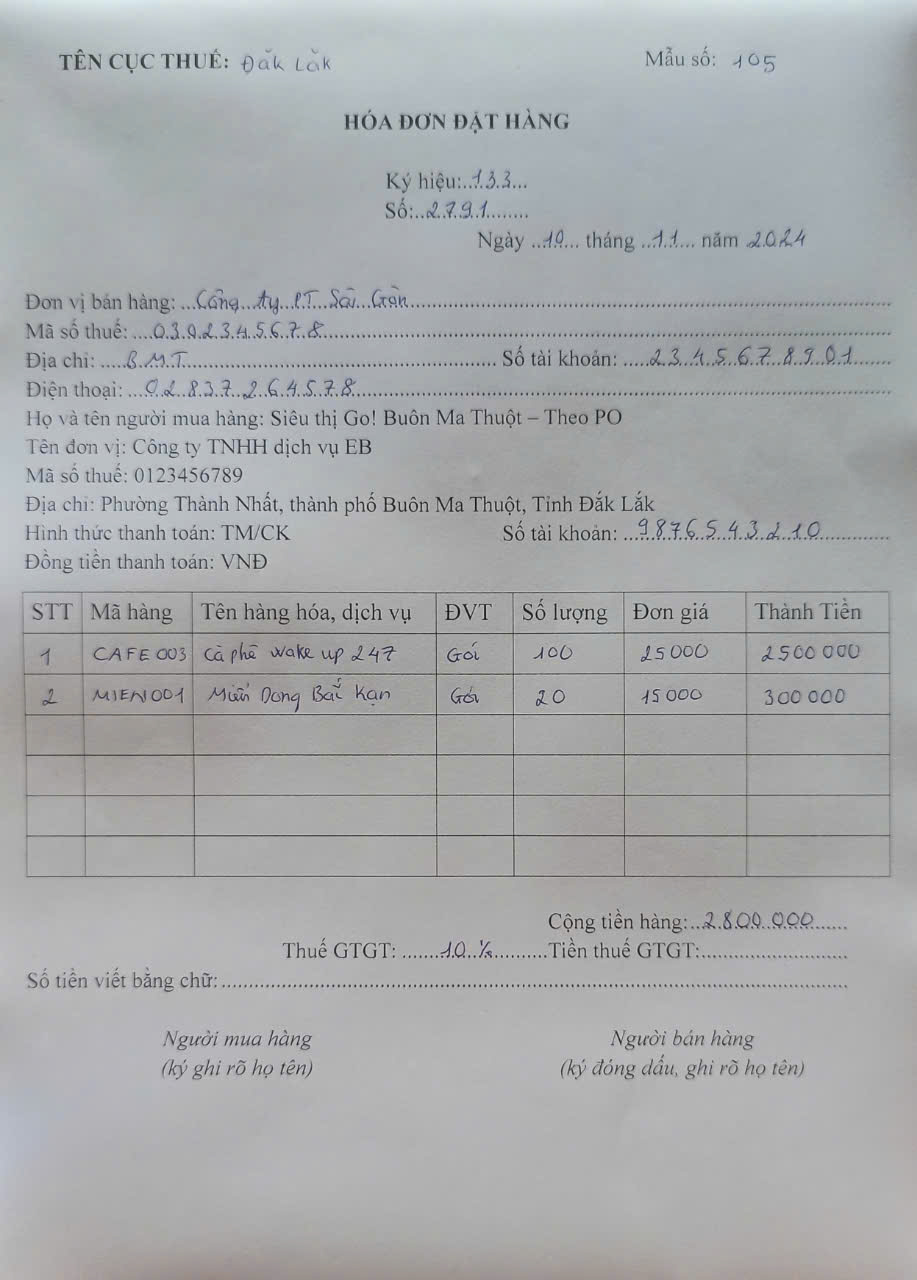 TÊN CỤC THUẾ: Đăk Lăk Mẫu số: 105
HÓA ĐƠN ĐẶT HÀNG
Ký hiệu:..133...
Số:..2791........
Ngày ..10... tháng ..11... năm 2024
Đơn vị bán hàng: ...Công ty PT Sài Gòn...
Mã số thuế: ....0302345678...
Địa chỉ: .....BMT... Số tài khoản: .....2345678901......
Điện thoại: ...02837264578...
Họ và tên người mua hàng: Siêu thị Go! Buôn Ma Thuột – Theo PO
Tên đơn vị: Công ty TNHH dịch vụ EB
Mã số thuế: 0123456789
Địa chỉ: Phường Thành Nhất, thành phố Buôn Ma Thuột, Tỉnh Đắk Lắk
Hình thức thanh toán: TM/CK Số tài khoản: ...9876543210...
Đồng tiền thanh toán: VNĐ
STT Mã hàng Tên hàng hóa, dịch vụ ĐVT Số lượng Đơn giá Thành Tiền
1 CAFE003 cà phê wake up 247 Gói 100 25000 2500 000
2 MIEN001 Miến Dong Bắc Kạn Gói 20 15000 300 000
Cộng tiền hàng:..2.800.000......
Thuế GTGT: .......10%..........Tiền thuế GTGT:...
Số tiền viết bằng chữ:...
Người mua hàng Người bán hàng
(ký ghi rõ họ tên) (ký đóng dấu, ghi rõ họ tên)